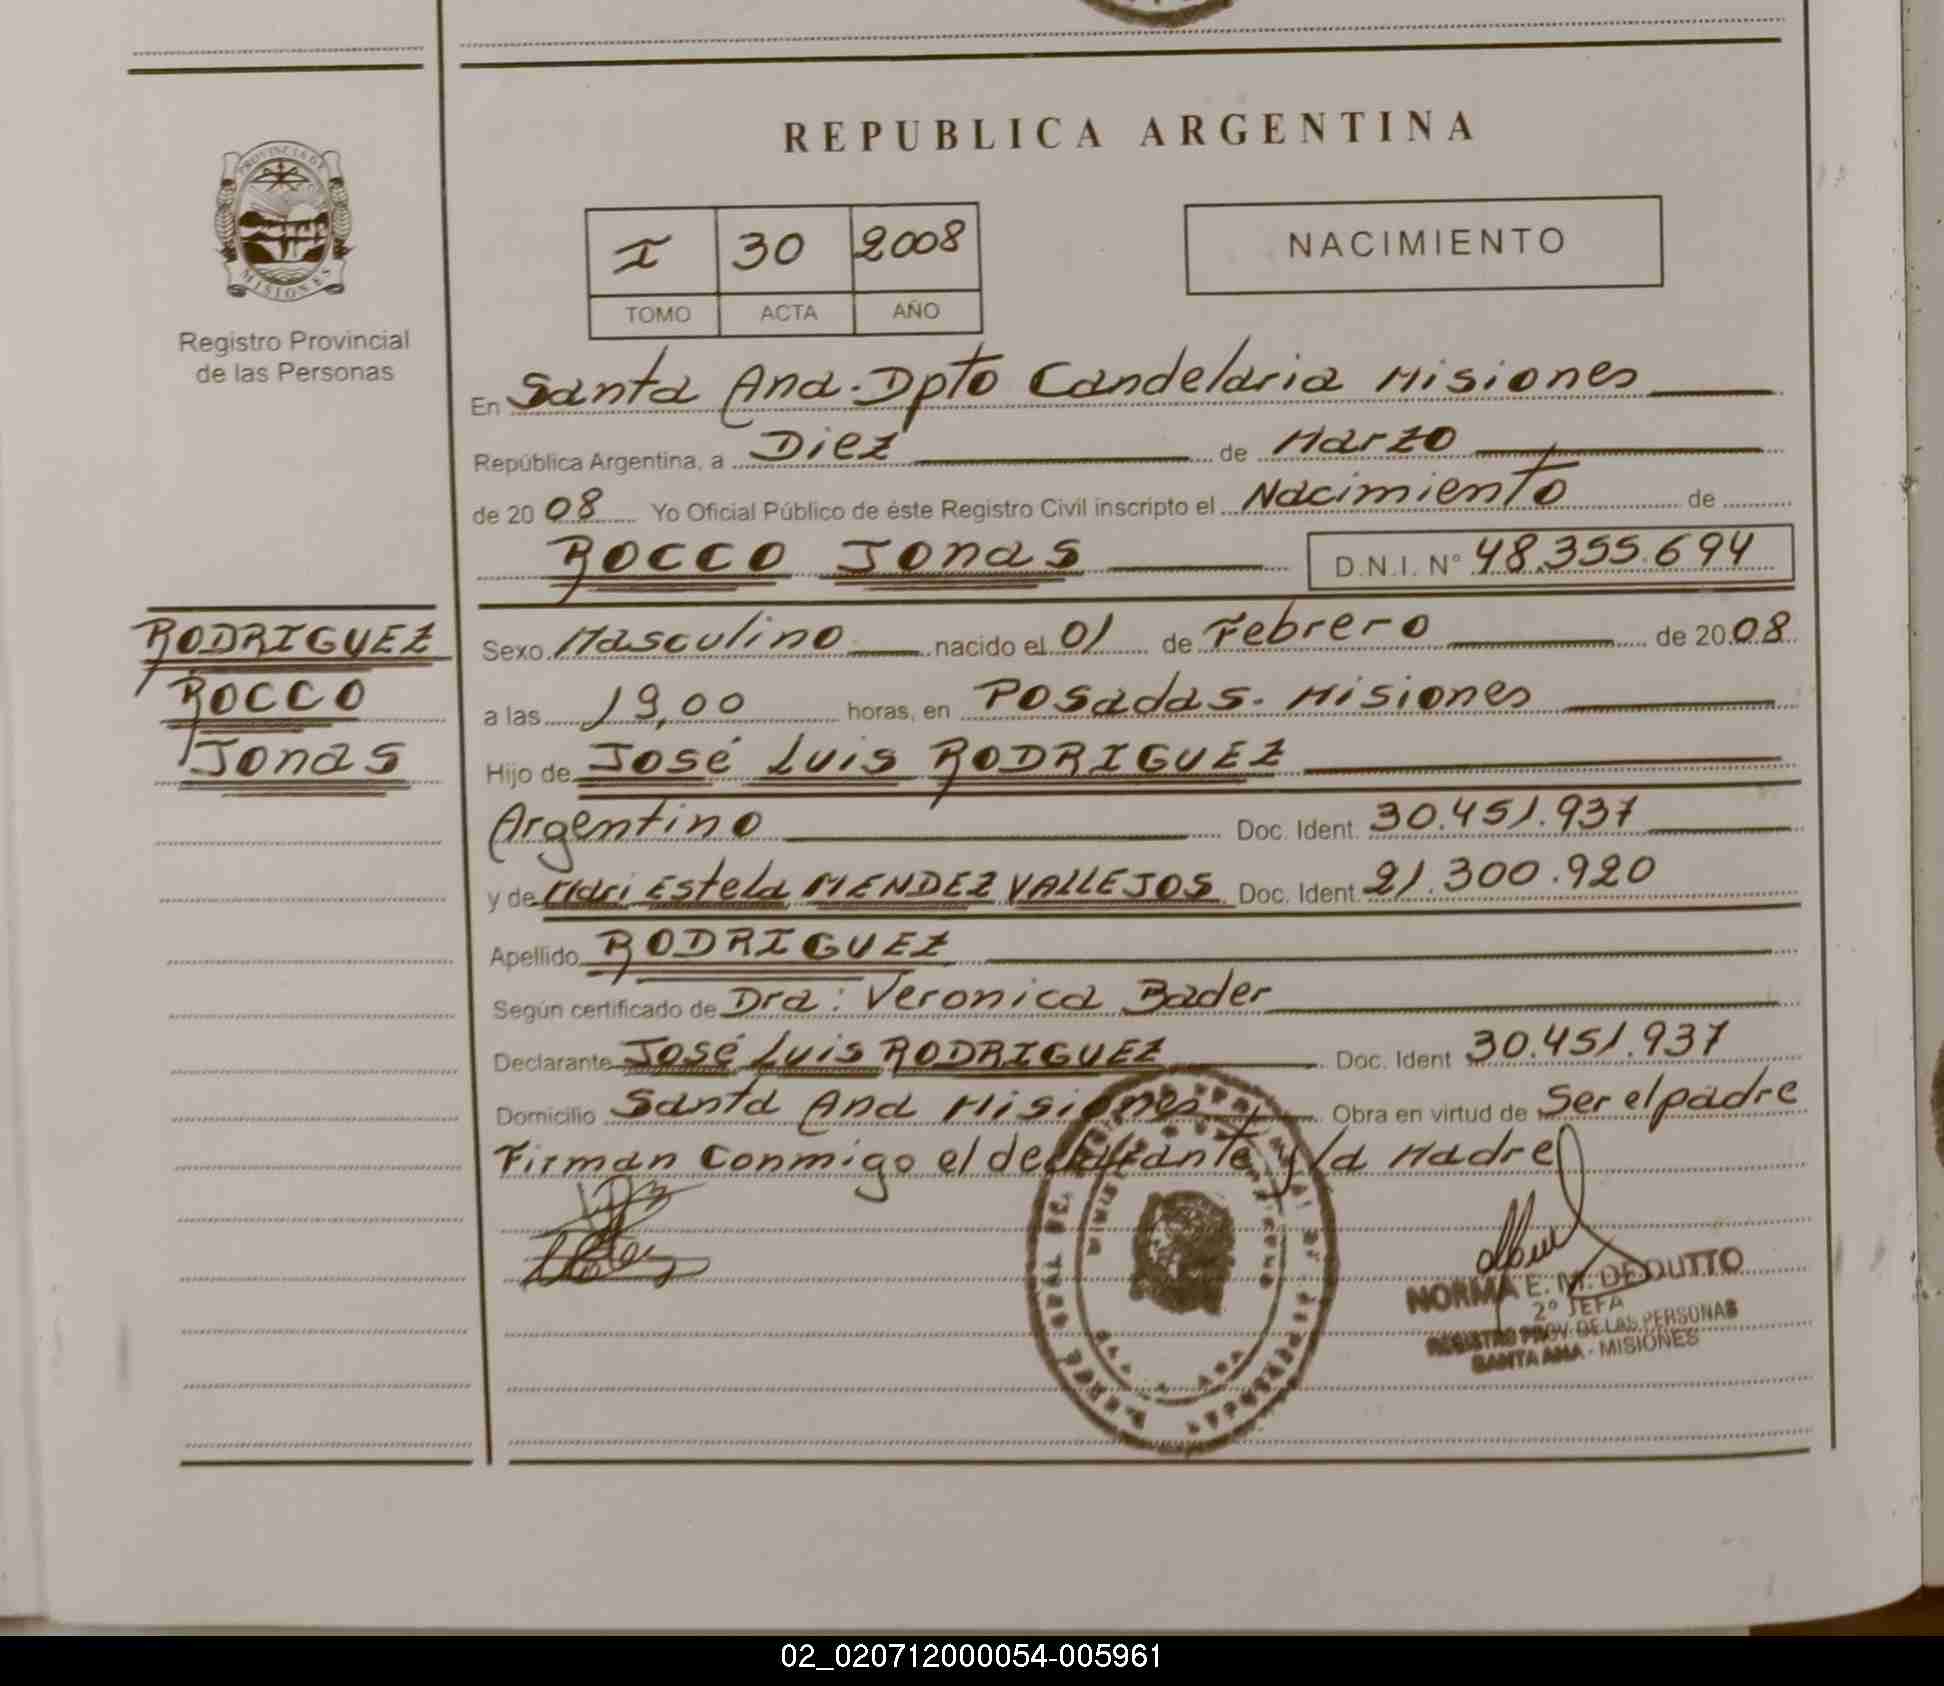 REPUBLICA ARGENTINA
PROVINCIA DE
MISIONES
Registro Provincial
de las Personas
I 30 2008
TOMO ACTA AÑO
NACIMIENTO
En Santa Ana. Dpto Candelaria Misiones
República Argentina, a Diez de Marzo
de 2008 Yo Oficial Público de éste Registro Civil inscripto el Nacimiento de
ROCCO Jonas D.N.I. N° 48.355.694
RODRIGUEZ
ROCCO
Jonas
Sexo Masculino nacido el 01 de Febrero de 2008
a las 19,00 horas, en Posadas. Misiones
Hijo de José Luis RODRIGUEZ
Argentino Doc. Ident. 30.451.937
y de Estela MENDEZ VALLEJOS Doc. Ident. 21.300.920
Apellido RODRIGUEZ
Según certificado de Dra: Veronica Bader
Declarante José Luis RODRIGUEZ Doc. Ident 30.451.937
Domicilio Santa Ana Misiones Obra en virtud de Ser el padre
Firman Conmigo el declarante y la Madre
NORMA E. M. DEDUTTO
2º JEFA
REGISTRO PROV. DE LAS PERSONAS
SANTA ANA - MISIONES
02_020712000054-005961